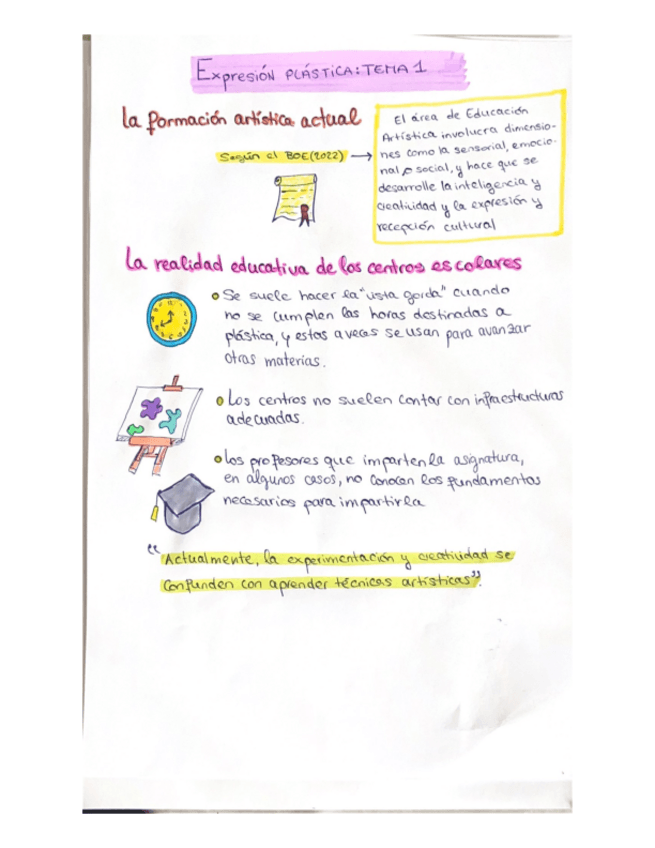 Expresión PLÁSTICA: TEMA 1
La formación artística actual
Según el BOE(2022) →
El área de Educación
Artística involucra dimensio-
nes como la sensorial, emocio-
nal o social, y hace que se
desarrolle la inteligencia y
creatividad y la expresión y
recepción cultural
La realidad educativa de los centros escolares
Se suele hacer la "vista gorda" cuando
no se cumplen las horas destinadas a
plástica, y estas a veces se usan para avanzar
otras materias.
Los centros no suelen contar con infraestructuras
adecuadas.
Los profesores que imparten la asignatura,
en algunos casos, no conocen los fundamentos
necesarios para impartirla
"Actualmente, la experimentación y creatividad se
confunden con aprender técnicas artísticas".